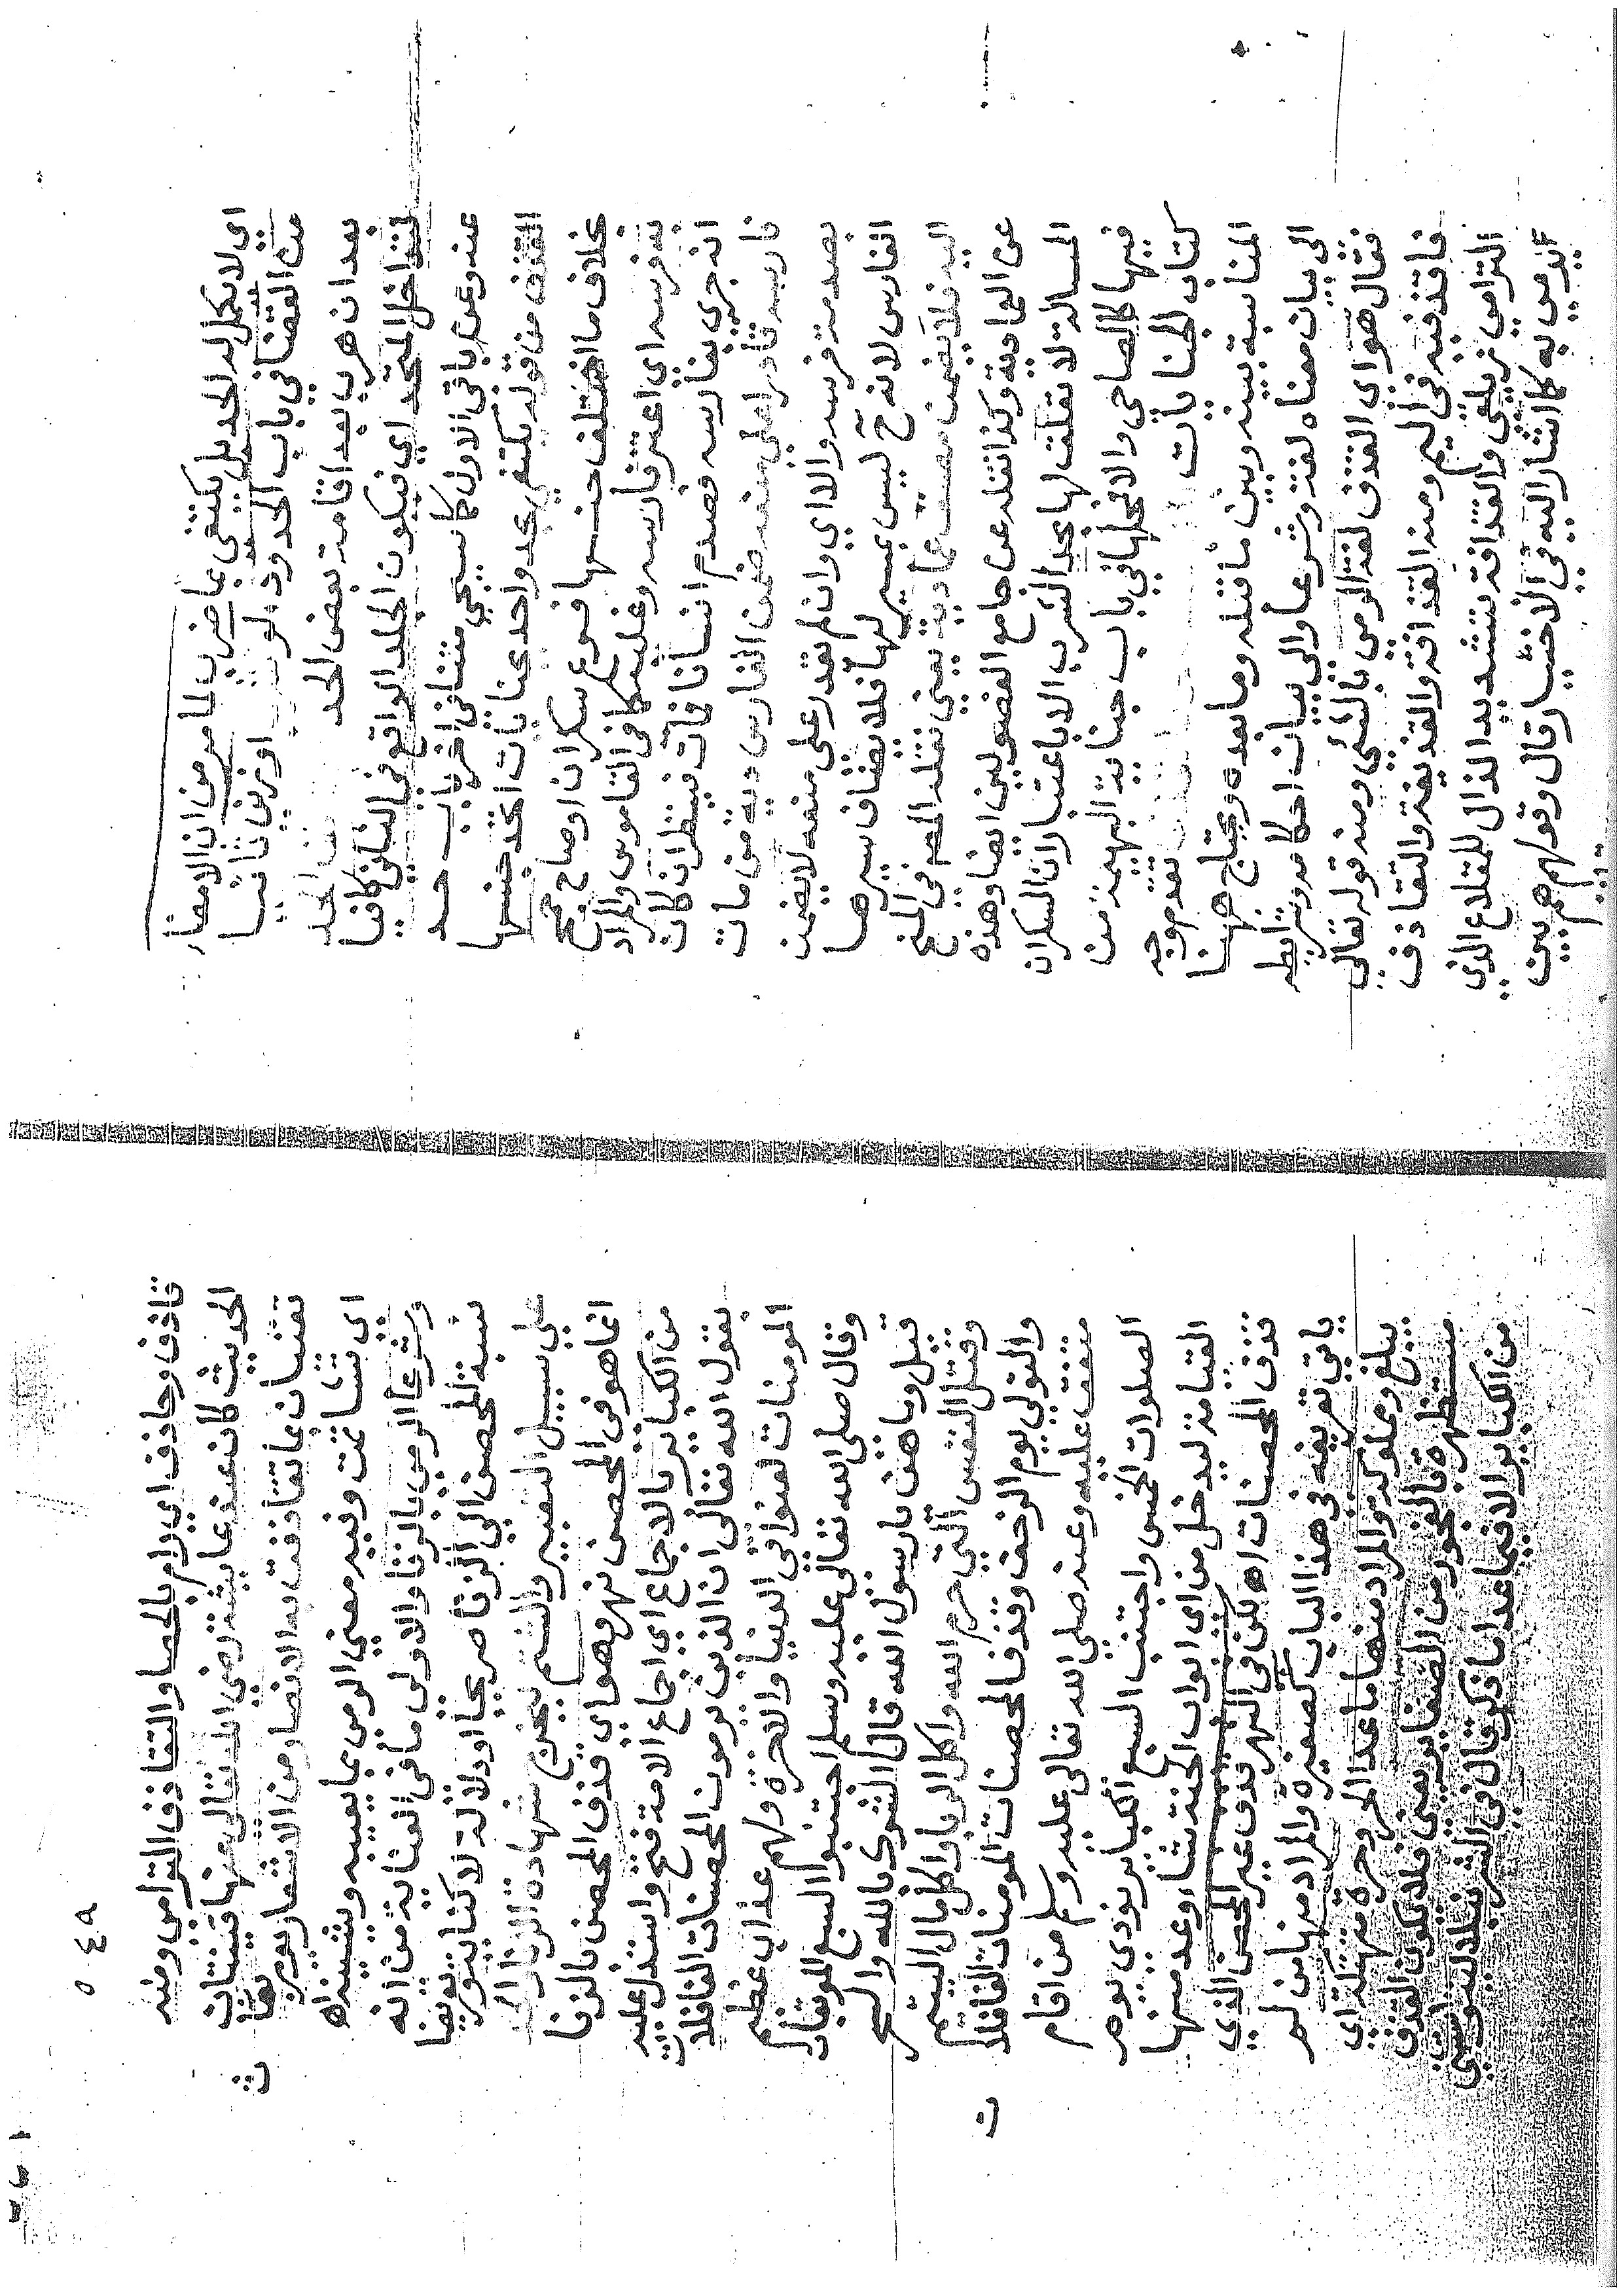 اى لا يكمل له الحد بل يكتفى بما ضرب لما مر من ان الامضاء
من القضا فى باب الحدود ولو شرب او زنى ثانيا
بعد ان هرب بعد اقامة بعض الحد
لتداخل المتحد اى فيكون الجلد الواقع فى الثانى كافيا
عنه وعن باقى الاول كما سيجي متنا فى اخر باب حد
القذف من قوله يكتفى بحد واحد بجنايات اتحد جنسها
بخلاف ما اختلف جنسها فروع سكران او صاح جمح
به فرسه اى اعتز فارسه وغلبه كما فى القاموس والمراد
انه جرى بفارسه فصدم انسانا فمات فينظر ان كان
فارسه قادرا على منعه ضمن الفارس دية من مات
بصدمة فرسه والا اى وان لم يقدر على منعه لا يضمن
الفارس لانه ح ليس بمسير لها فلا يضاف سيرها
اليه فلا يضمن مصنف عمادية يعنى نقله المصـ فى المنح
عن العمادية وكذا نقله عن جامع الفصولين ايضا وهذه
المسالة لا تعلق لها بحد الشرب الا باعتبار ان السكران
فيها كالصاحى والا فمحلها فى باب جناية البهيمة من
كتاب الجنايات تقدم وجه
المناسبة بينه وبين ما قبله وما بعده ويحتاج ههنا
الى بيان معناه لغة وشرعا والى بيان احكامه وشرايطه
فقال هو اى القذف لغة الرمى بالشئ ومنه قوله تعالى
فاقذفيه فى اليم ومنه القذافة والقذيفة والتقاذف
الترامى زيلعى والقذافة بتشديد الذال للمقلاع الذى
يرمى به كما اشار اليه فى الاختيار قال وقولهم هم بين
٥٤٩
قاذف وحاذف اى رام بالحصا والتقاذف الترامى ومنه
الحديث كان عند عايشة رضى الله تعالى عنها قينتان
تغنيان بما تقاذفت به الانصار من الاشعار يوم بعاث
اى تشاتمت وفيه معنى الرمى بما يعيبه ويشينه اه
وشرعا الرمى بالزنا والاولى ما فى العناية من انه
نسبة المحصن الى الزنا صريحا او دلالة لا كتابته ويقفا
على سبيل التعيير والشتم يخرج شهادة الزنا
انما هو فى المحصن نهر وهو اى قذف المحصن بالزنا
من الكباير بالاجماع اى اجماع الامة فتح واستدل عليه
بقول الله تعالى ان الذين يرمون المحصنات الغافلات
المومنات لعنوا فى الدنيا والاخرة ولهم عذاب عظيم
وقال صلى الله تعالى عليه وسلم اجتنبوا السبع الموبقات
قيل وما هن يا رسول الله قال الشرك بالله والسحر
وقتل النفس التى حرم الله واكل الربا واكل مال اليتيم
والتولى يوم الزحف وقذف المحصنات المومنات الغافلات
متفق عليه وعنه صلى الله تعالى عليه وسلم من اقام
الصلوات الخمس واجتنب السبع الكباير نودى يوم
القيامة ليدخل من اى ابواب الجنة شاء وعد منها
قذف المحصنات اه لكن فى النهر قذف غير المحصن الذى
ياتى تعريفه فى هذا الباب كصغيرة والمراد منها من لم
يبلغ ومملوكة والمراد منها ما عدا المـ وحرة متهتكة اى
مستظهرة بالفجور من الصغاير يعنى فلا يكون القذف
من الكباير الا فيما عدا ما ذكر قال فى الشرنبلالية وسى